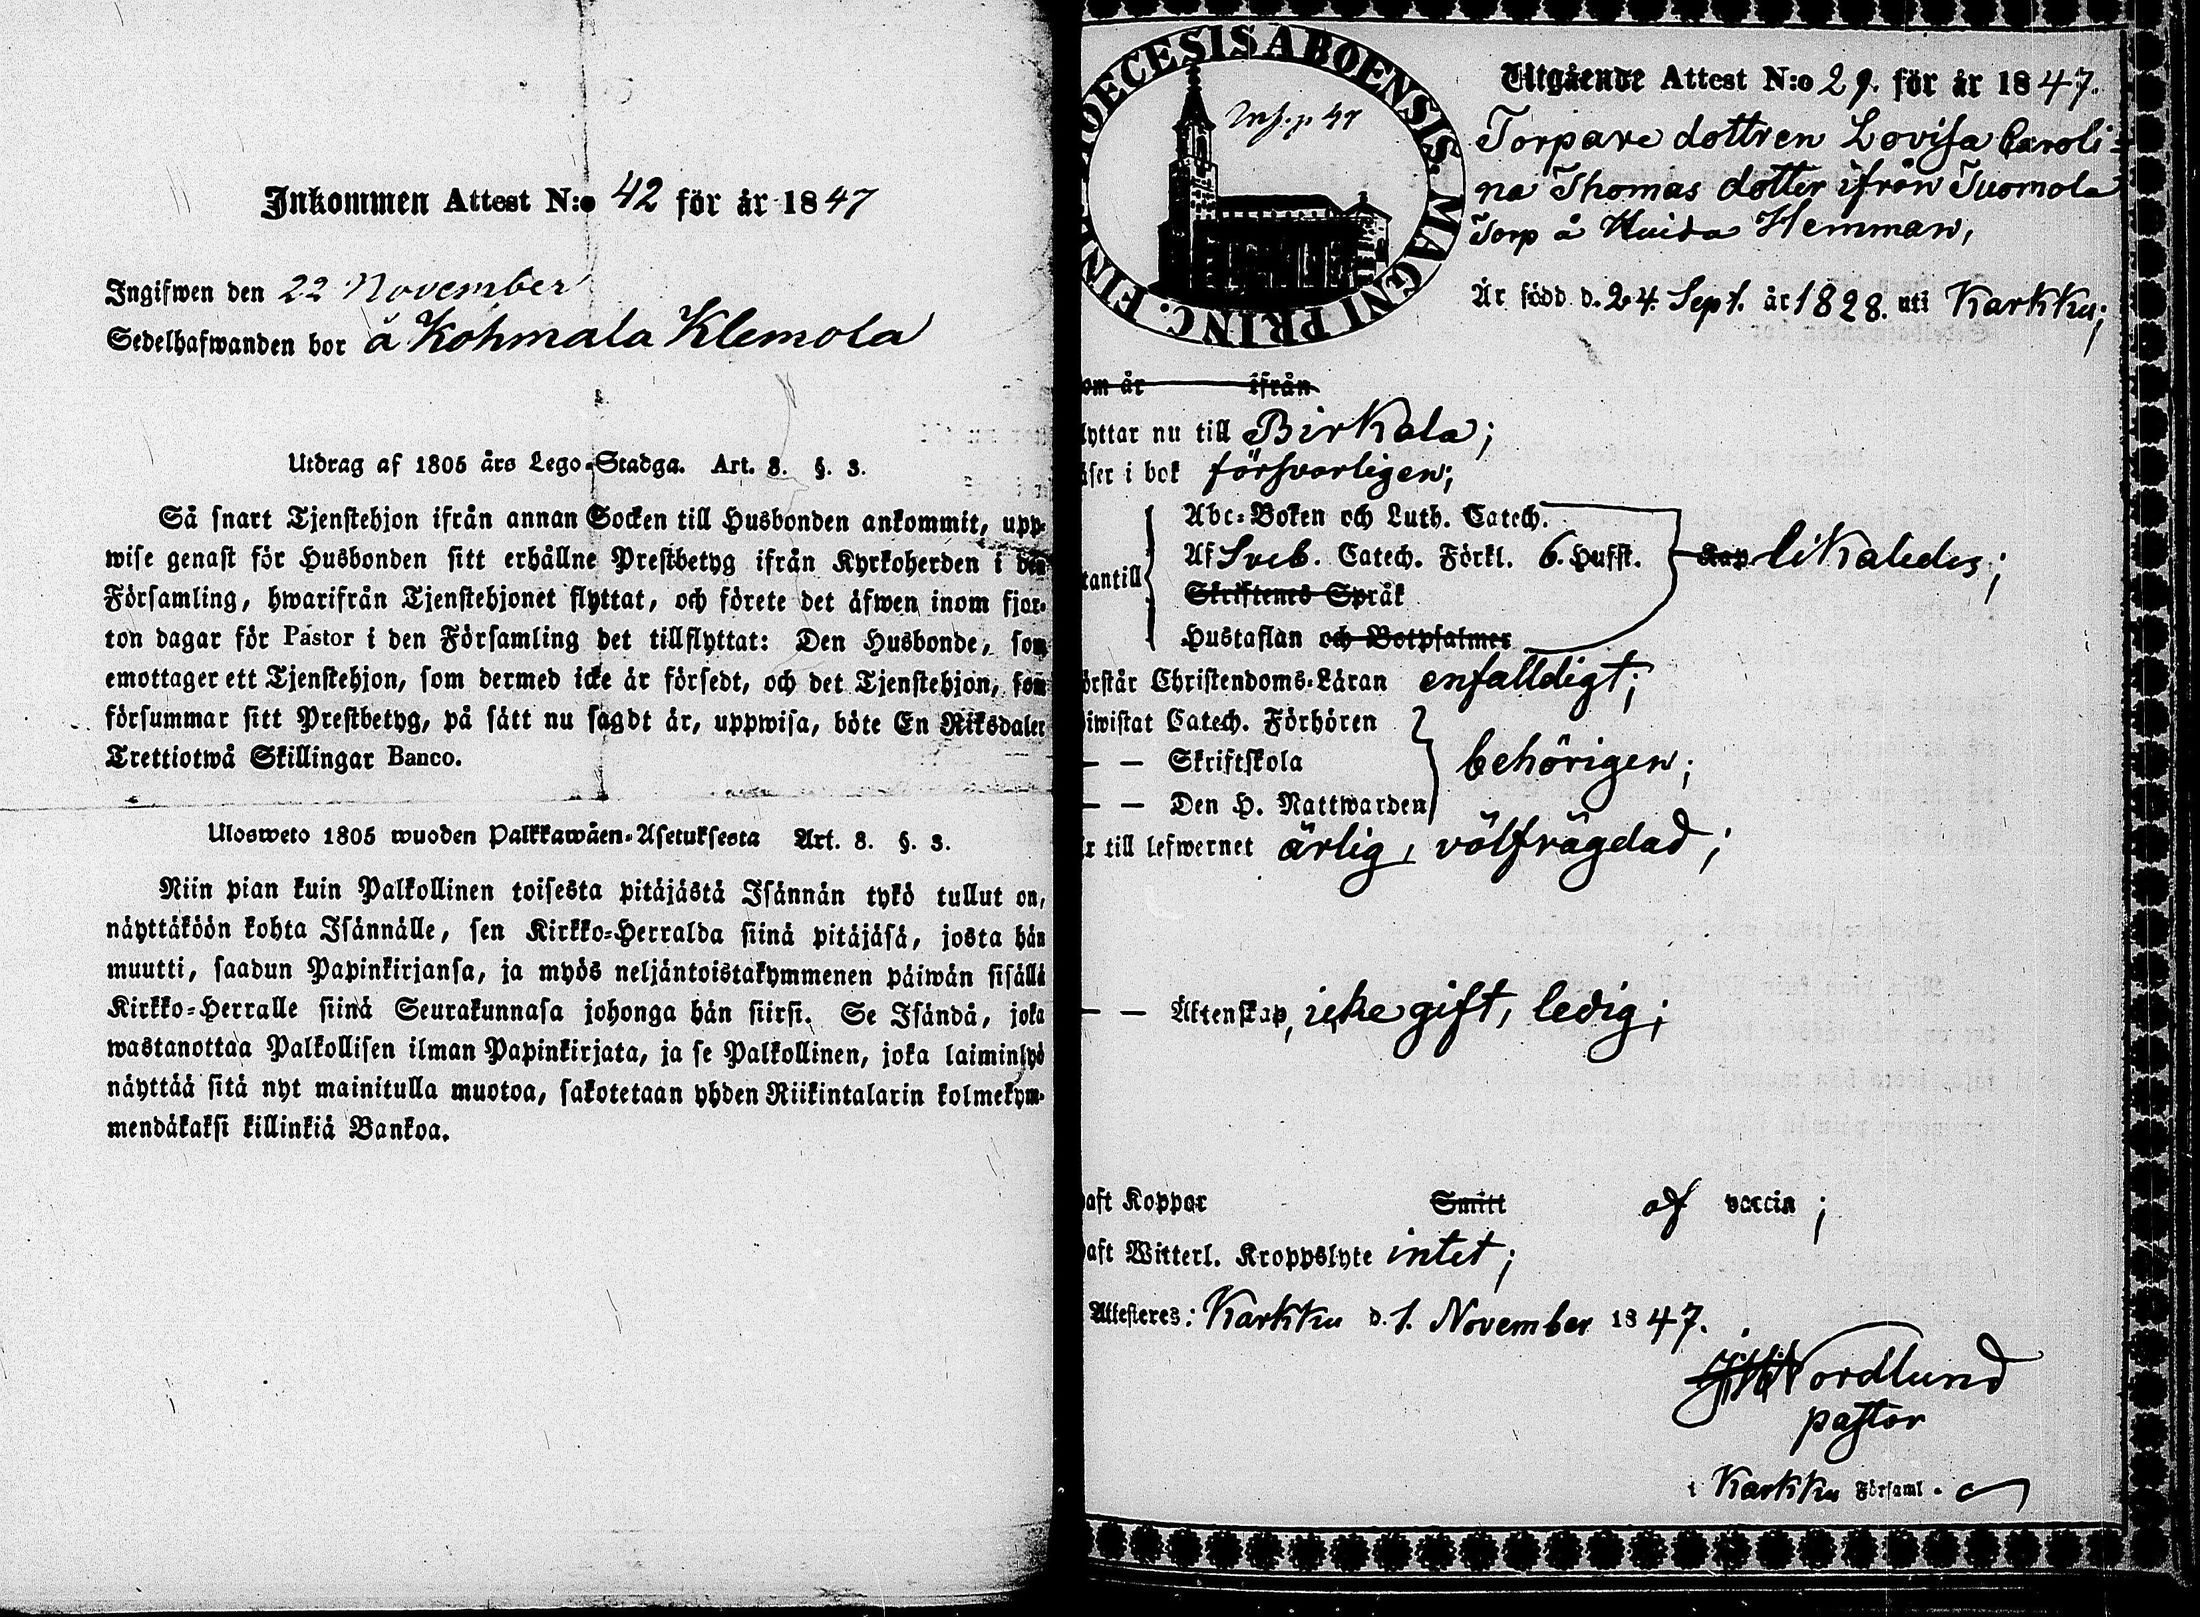 Inkommen Attest N:o 42 för år 1847
Ingifwen den 22 November
Sedelhafwanden bor å Kohmala Klemola
Utdrag af 1805 års Lego-Stadga. Art. 8. §. 3.
Så snart Tjenstehjon ifrån annan Socken till Husbonden ankommit, upp-
wise genast för Husbonden sitt erhållne Prestbetyg ifrån Kyrkoherden i den
Församling, hwarifrån Tjenstehjonet flyttat, och förete det äfwen inom fjor-
ton dagar för Pastor i den Församling det tillflyttat: Den Husbonde, som
emottager ett Tjenstehjon, som dermed icke är försedt, och det Tjenstehjon, som
försummar sitt Prestbetyg, på sätt nu sagdt är, uppwisa, böte En Riksdaler
Trettiotwå Skillingar Banco.
Ulosweto 1805 wuoden Palkkawäen-Asetuksesta Art. 8. §. 3.
Niin pian kuin Palkollinen toisesta pitäjästä Isännän tykö tullut on,
näyttäköön kohta Isännälle, sen Kirkko-Herralda siinä pitäjäsä, josta hän
muutti, saadun Papinkirjansa, ja myös neljäntoistakymmenen päiwän sisällä
Kirkko-Herralle siinä Seurakunnasa johonga hän siirsi. Se Isändä, joka
wastanottaa Palkollisen ilman Papinkirjata, ja se Palkollinen, joka laiminlyö
näyttää sitä nyt mainitulla muotoa, sakotetaan yhden Riikintalarin kolmekym-
mendäkaksi killinkiä Bankoa.
DIOECESIS ABOENSIS. MAGNI PRINC. FIN
Utgående Attest N:o 29. för år 1847.
Torpare dottren Lovisa Caroli-
na Thomas dotter ifrån Tuomola
Torp å Huida Hemman,
Är född d. 24. Sept. år 1828. uti Karkku;
om år ifrån
lyttar nu till Birkala;
äser i bok försvarligen;
Abc-Boken och Luth. Catech.
tantill Af Sveb. Catech. Förkl. 6. Hufst. likaledes;
Skriftenes Språk
Hustaflan och Botpsalmer
örstår Christendoms-Läran enfalldigt;
iwistat Catech. Förhören
— — Skriftskola behörigen;
— — Den H. Nattwarden
r till lefwernet ärlig, välfrägdad;
— — Äktenskap, icke gift, ledig;
aft Koppor Smitt af vaccin;
aft Witterl. Kroppslyte intet;
Attesteres: Karkku d. 1. November 1847.
Nordlund
pastor
i Karkku Församl.